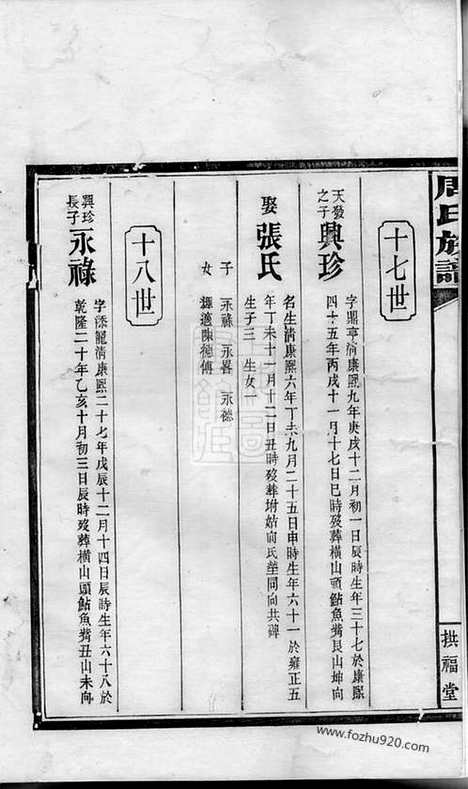 周氏族譜
拱福堂
十七世
天發之子
興珍
字鼎亭清康熙九年庚戌十二月初一日辰時生年三十七於康熙
四十五年丙戌十一月十七日巳時歿葬橫山頭鮎魚嘴艮山坤向
娶
張氏
名生清康熙六年丁未九月二十五日申時生年六十一於雍正五
年丁未十一月十二日丑時歿葬坿姑向氏塋同向共碑
生子三 生女一
子 永祿 永 永德
女 適陳德傳
十八世
興珍長子
永祿
字添龍清康熙二十七年戊辰十二月十四日辰時生年六十八於
乾隆二十年乙亥十月初三日辰時歿葬橫山頭鮎魚嘴丑山未向
www.fozhu920.com